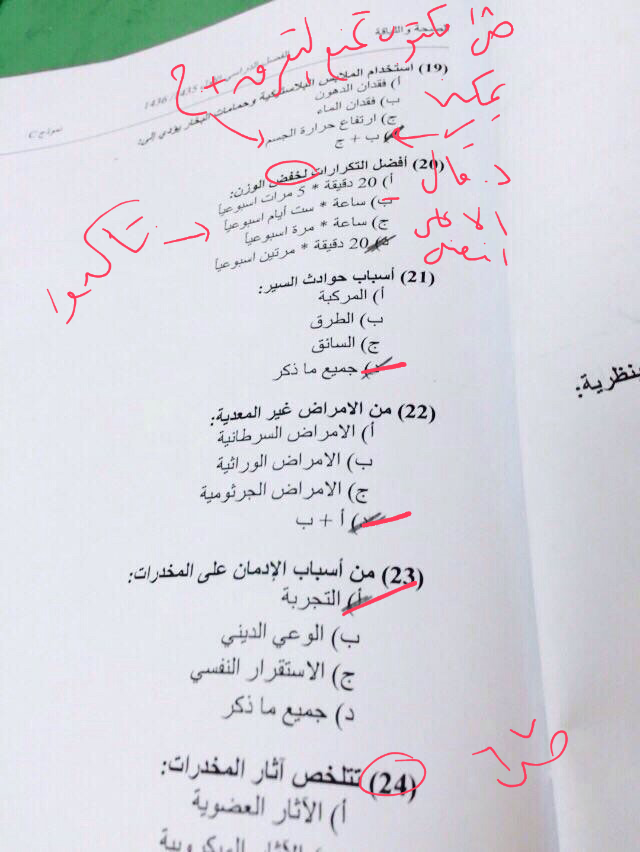 الصحة واللياقة
الفصل الدراسي 1435 / 1436
نموذج C
(19) استخدام الملابس البلاستيكية وحمامات البخار يؤدي الى:
أ) فقدان الدهون
ب) فقدان الماء
ج) ارتفاع حرارة الجسم
د) ب + ج
(20) أفضل التكرارات لخفض الوزن:
أ) 20 دقيقة * 5 مرات اسبوعياً
ب) ساعة * ست أيام اسبوعياً
ج) ساعة * مرة اسبوعياً
د) 20 دقيقة * مرتين اسبوعياً
د. قال
تأكدوا
(21) أسباب حوادث السير:
أ) المركبة
ب) الطرق
ج) السائق
د) جميع ما ذكر
نظرية:
(22) من الامراض غير المعدية:
أ) الامراض السرطانية
ب) الامراض الوراثية
ج) الامراض الجرثومية
د) أ + ب
(23) من أسباب الإدمان على المخدرات:
أ) التجربة
ب) الوعي الديني
ج) الاستقرار النفسي
د) جميع ما ذكر
(24) تتلخص آثار المخدرات:
أ) الآثار العضوية